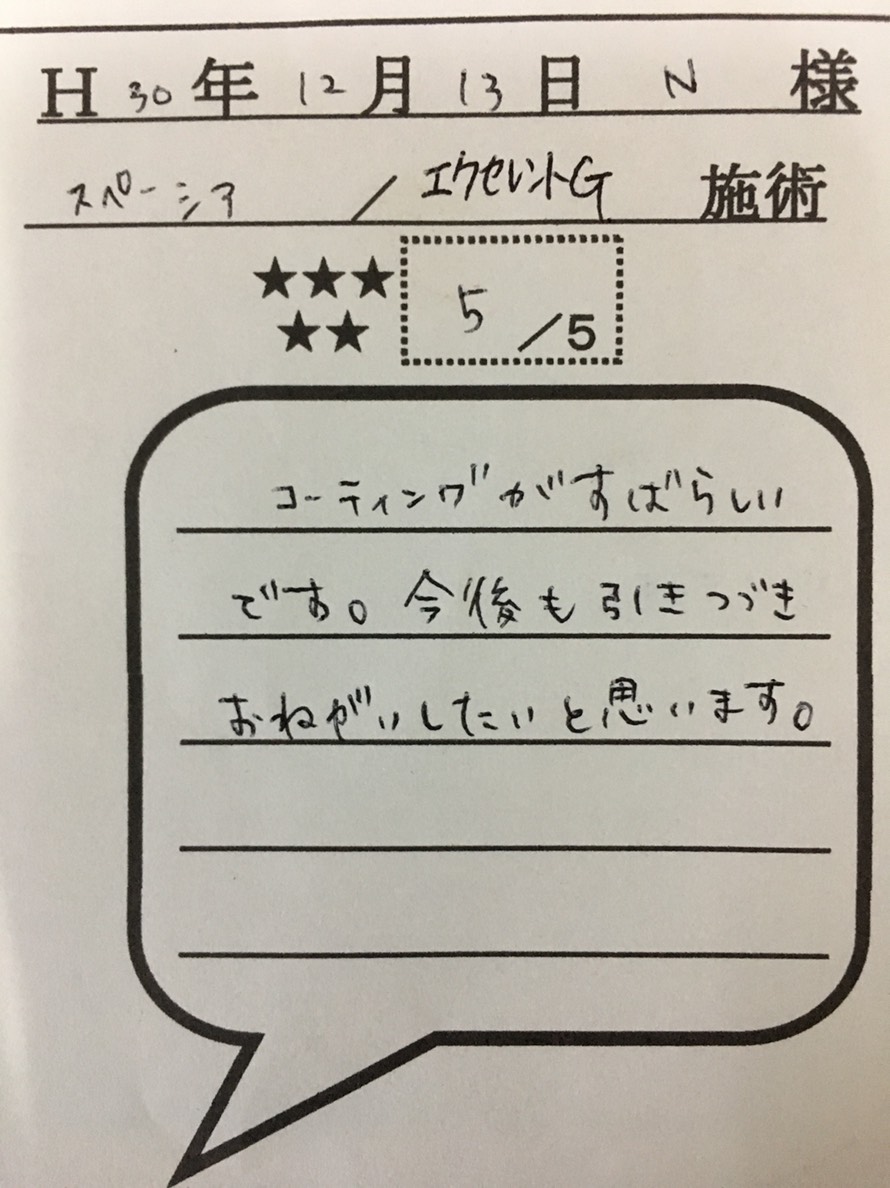 H30年12月13日 N 様
スペーシア / エクセレントG 施術
★★★
★★ 5/5
コーティングがすばらしい
です。今後も引きつづき
おねがいしたいと思います。